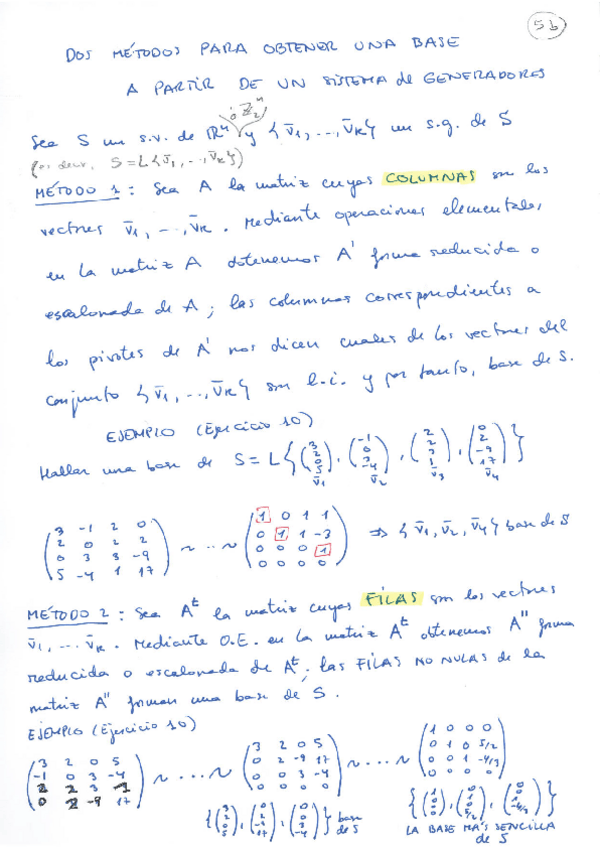 5b
DOS MÉTODOS PARA OBTENER UNA BASE
A PARTIR DE UN SISTEMA de GENERADORES
ó ℤ₂ⁿ
Sea S un s.v. de ℝⁿ y {v̄₁, ..., v̄ₖ} un s.g. de S
(es decir, S = L{v̄₁, ..., v̄ₖ})
MÉTODO 1: Sea A la matriz cuyas COLUMNAS son los
vectores v̄₁, ..., v̄ₖ. Mediante operaciones elementales,
en la matriz A obtenemos A' forma reducida o
escalonada de A; las columnas correspondientes a
los pivotes de A' nos dicen cuales de los vectores del
conjunto {v̄₁, ..., v̄ₖ} son l.i. y por tanto, base de S.
EJEMPLO (Ejercicio 10)
Hallar una base de S = L { (3 2 0 5), (-1 0 3 -4), (2 2 3 1), (0 2 -9 17) }
v̄₁ v̄₂ v̄₃ v̄₄
3 -1 2 0
2 0 2 2
0 3 3 -9
5 -4 1 17
~ ... ~
1 0 1 1
0 1 1 -3
0 0 0 1
0 0 0 0
⇒ {v̄₁, v̄₂, v̄₄} base de S
MÉTODO 2: Sea Aᵗ la matriz cuyas FILAS son los vectores
v̄₁, ... v̄ₖ. Mediante O.E. en la matriz Aᵗ obtenemos A'' forma
reducida o escalonada de Aᵗ; las FILAS NO NULAS de la
matriz A'' forman una base de S.
EJEMPLO (Ejercicio 10)
3 2 0 5
-1 0 3 -4
2 2 3 1
0 2 -9 17
~ ... ~
3 2 0 5
0 2 -9 17
0 0 3 -4
0 0 0 0
~ ... ~
1 0 0 0
0 1 0 5/2
0 0 1 -4/3
0 0 0 0
{ (3 2 0 5), (0 2 -9 17), (0 0 3 -4) } base de S
{ (1 0 0 0), (0 1 0 5/2), (0 0 1 -4/3) }
LA BASE MÁS SENCILLA
de S